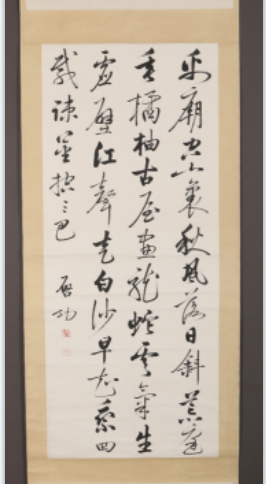 禹廟空山裏秋風落日斜荒庭
垂橘柚古屋畫龍蛇雲氣生
虛壁江聲走白沙早知乘四
載疎鑿控三巴
啟功